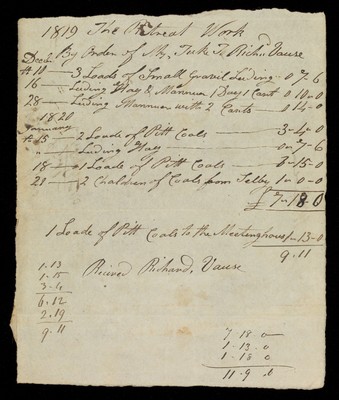 1819 The Retreat Work
By Order of Mr. Tuk To Richd Vause
Decbr
10 — 3 Loads of Small Gravil Leding — 0-7-6
16 — Leding Hay & Mannur 1 Day 1 Cant 0-10-0
28 — Leding Mannur with 2 Cants — 0-14-0
1820
January
15 — 2 Loads of Pitt Coals — 3-4-0
„ — Leding Hay — 0-7-6
18 — 1 Loads of Pitt Coals — 1-15-0
21 — 2 Chaldren of Coals from Selby 1-0-0
£ 7-18 0
1 Loads of Pitt Coals to the Meetinghous 1-13-0
9.11
Receved Richard Vause
1.13
1.15
3.4
6.12
2.19
9.11
7.18 0
1.13.0
1.18 0
11.9.6